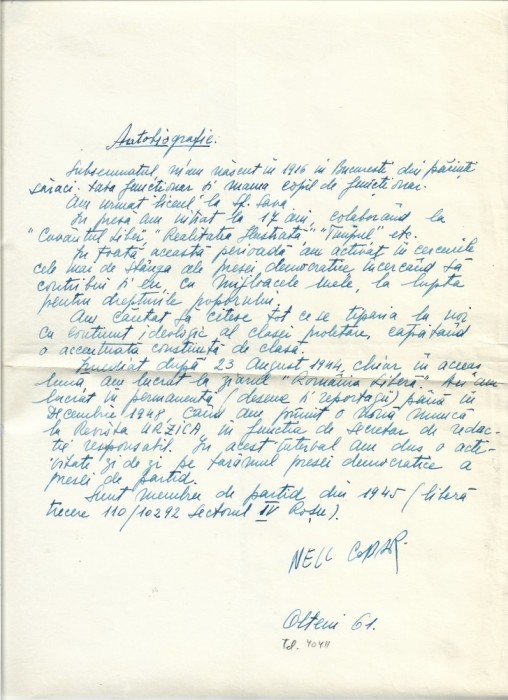 Autobiografie.
Subsemnatul, m'am născut în 1916 în Bucuresti din părinți
săraci. tata funcționar și mama copil de funcționar.
Am urmat liceul la Sf. Sava.
In presă am intrat la 17 ani, colaborând la
"Cuvântul liber", "Realitatea Ilustrată", "Timpul" etc.
In toată această perioadă am activat în cercurile
cele mai de stânga ale presei democratice încercând să
contribui și eu, cu mijloacele mele, la lupta
pentru drepturile poporului.
Am căutat să citesc tot ce se tiparia la noi
cu conținut ideologic al clasei proletare, capătând
o accentuata constiință de clasă.
Imediat după 23 August 1944, chiar în aceea
lună, am lucrat la ziarul "România Liberă". Aci am
lucrat în permanență (desene și reportagii) până în
Decembrie 1948, când am primit o nouă muncă
la Revista URZICA în functia de secretar de redac-
tie responsabil. In acest interval am dus o acti-
vitate zi de zi pe tarâmul presei democratice a
presei de partid.
Sunt membru de partid din 1945 (literă
trecere 110/10292 Sectorul IV Roșu).
NELL COBAR.
Olteni 61.
Td. 40411